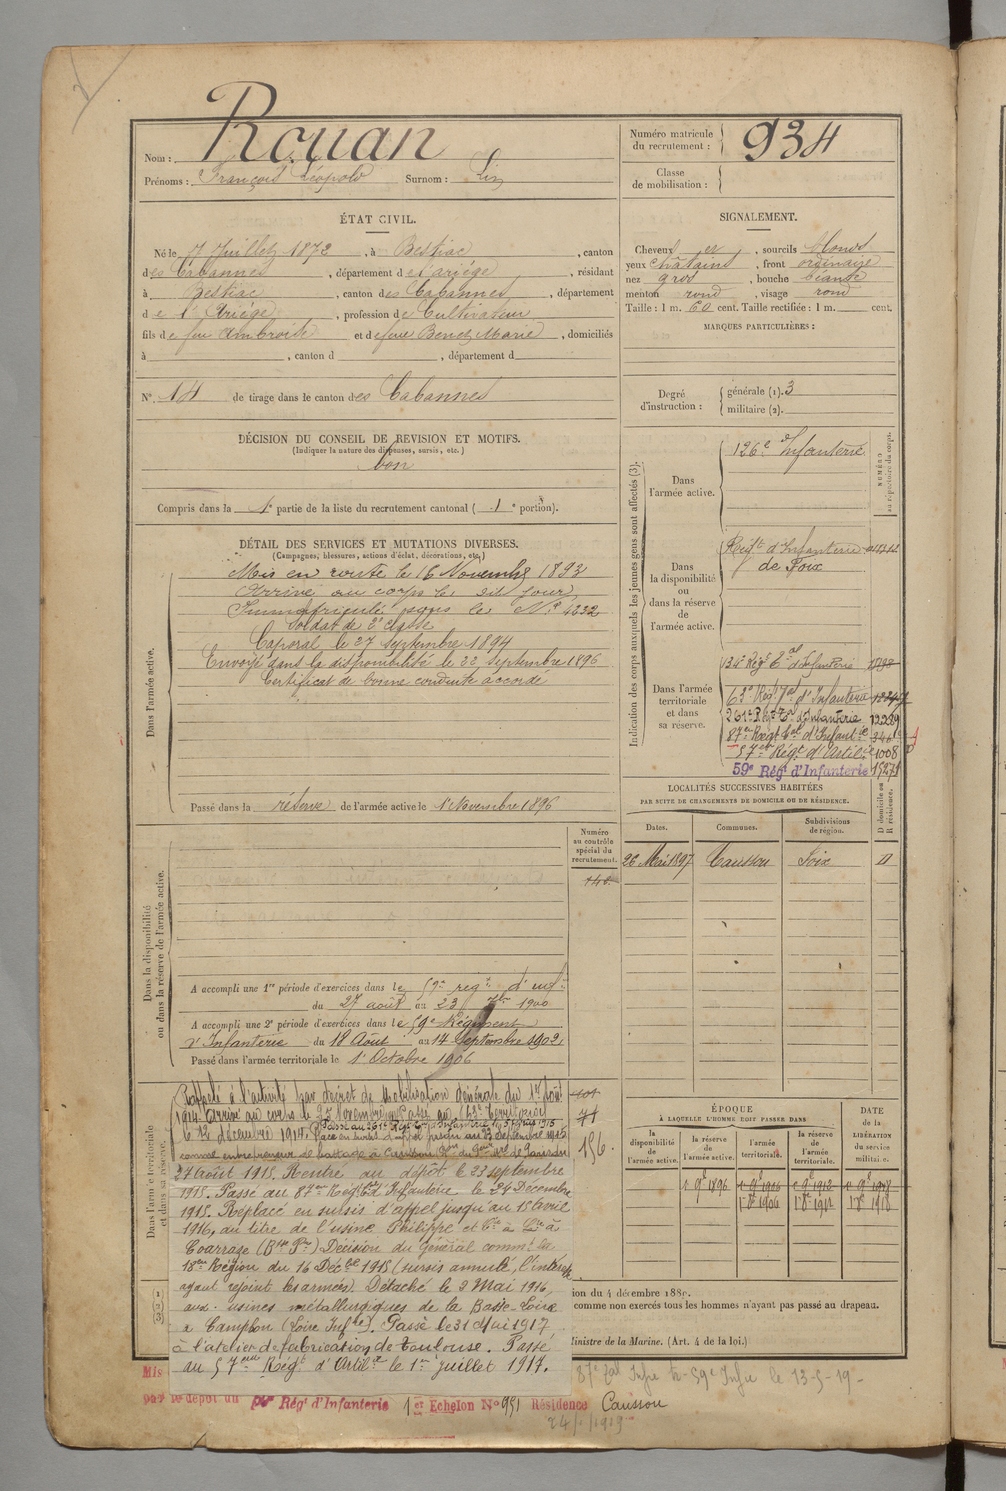 Rouan
Nom :
Prénoms : François Léopold Surnom :
Numéro matricule du recrutement : 934
Classe de mobilisation :
ÉTAT CIVIL.
Né le 7 Juillet 1872 , à Bestiac , canton
des Cabannes , département de l'ariège , résidant
à Bestiac , canton des Cabannes , département
de l'Ariège , profession de Cultivateur
fils de feu Ambroise et de feue Benet Marie , domiciliés
à , canton d , département d
N° 14 de tirage dans le canton des Cabannes
DÉCISION DU CONSEIL DE REVISION ET MOTIFS.
(Indiquer la nature des dispenses, sursis, etc.)
bon
Compris dans la 1e partie de la liste du recrutement cantonal ( 1e portion).
SIGNALEMENT.
Cheveux et , sourcils blonds
yeux châtains , front ordinaire
nez gros , bouche grande
menton rond , visage rond
Taille : 1 m. 60 cent. Taille rectifiée : 1 m. cent.
MARQUES PARTICULIÈRES :
Degré d'instruction :
générale (1). 3
militaire (2).
Indication des corps auxquels les jeunes gens sont affectés (3).
NUMÉRO au répertoire du corps.
Dans l'armée active.
126e d'Infanterie
Dans la disponibilité ou dans la réserve de l'armée active.
Régt d'Infanterie
de Foix
Dans l'armée territoriale et dans sa réserve.
134e Régt tal d'Infanterie
63e Régt tal d'Infanterie
261e Régt d'Infanterie
87e Régt tal d'Infantie
57e Régt d'Artilie 1008
59e Régt d'Infanterie
DÉTAIL DES SERVICES ET MUTATIONS DIVERSES.
(Campagnes, blessures, actions d'éclat, décorations, etc.)
Dans l'armée active.
Mis en route le 16 Novembre 1893
Arrivé au corps le dit jour
Immatriculé sous le N° 4232
Soldat de 2e classe
Caporal le 27 septembre 1894
Envoyé dans la disponibilité le 22 septembre 1896
Certificat de bonne conduite accordé
Passé dans la réserve de l'armée active le 1 Novembre 1896
Numéro au contrôle spécial du recrutement.
LOCALITÉS SUCCESSIVES HABITÉES
PAR SUITE DE CHANGEMENTS DE DOMICILE OU DE RÉSIDENCE.
D domicile ou R résidence.
Dates. Communes. Subdivisions de région.
26 Mai 1897 Caussou Foix D
Dans la disponibilité ou dans la réserve de l'armée active.
A accompli une 1re période d'exercices dans le 59e régt d'infie
du 27 août au 23 7bre 1900
A accompli une 2e période d'exercices dans le 59e Régiment
d'Infanterie du 18 Août au 14 Septembre 1902
Passé dans l'armée territoriale le 1er Octobre 1906
Dans l'armée territoriale et dans sa réserve.
Rappelé à l'activité par décret de Mobilisation Générale du 1er août
1914. Arrivé au corps le 25 Novembre. Passé au 163e Territorial
le 12 décembre 1914.
71
156
27 août 1915. Rentré au dépôt le 23 septembre
1915. Passé au 87ème Régt tal d'Infanterie le 24 Décembre
1915. Replacé en sursis d'appel jusqu'au 15 avril
1916, au titre de l'usine Philippe et
Coarraze (Bses Pées) Décision du Général commt la
18ème Région du 16 Décbre 1915 (sursis annulé, l'intéressé
ayant rejoint les armées). Détaché le 2 Mai 1916,
aux usines métallurgiques de la Basse-Loire
à Campbon (Loire Infre). Passé le 31 Mai 1917
à l'atelier de fabrication de Toulouse. Passé
au 57ème Régt d'Artilie le 1er juillet 1917.
ÉPOQUE
À LAQUELLE L'HOMME DOIT PASSER DANS
la disponibilité de l'armée active.
la réserve de l'armée active.
l'armée territoriale.
la réserve de l'armée territoriale.
DATE de la LIBÉRATION du service militaire.
1 9bre 1896
1 8bre 1906 1 8bre 1912 1 8bre 1918
1
2
3
ion du 4 décembre 1889.
comme non exercés tous les hommes n'ayant pas passé au drapeau.
Ministre de la Marine. (Art. 4 de la loi.)
Mis
87e tal Infie 59e Infie le 13-5-19
par le dépôt du Régt d'Infanterie 1er Echelon N° 951 Résidence Caussou